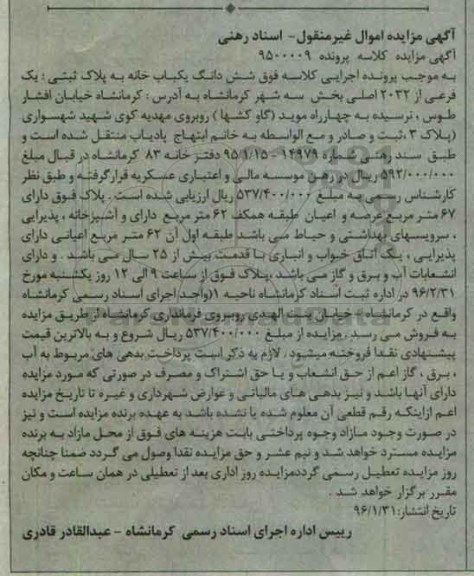 آگهی مزایده اموال غیرمنقول- اسناد رهنی
آگهی مزایده کلاسه پرونده ۹۵۰۰۰۰۹
به موجب پرونده اجرایی کلاسه فوق شش دانگ یکباب خانه به پلاک ثبتی : یک
فرعی از ۲۰۳۲ اصلی بخش سه شهر کرمانشاه به آدرس : کرمانشاه خیابان افشار
طوس ، نرسیده به چهارراه موید (گاو کشها ) روبروی مهدیه کوی شهید شهسواری
(پلاک ۳ ،ثبت و صادر و مع الواسطه به خانم ابتهاج پادیاب منتقل شده است و
طبق سند رهنی شماره ۱۴۹۷۹- ۹۵/۱/۱۵ دفتر خانه ۸۳ کرمانشاه در قبال مبلغ
۵۹۲/۰۰۰/۰۰۰ ریال در رهن موسسه مالی و اعتباری عسکریه قرارگرفته و طبق نظر
کارشناس رسمی به مبلغ ۵۳۷/۴۰۰/۰۰۰ ریال ارزیابی شده است . پلاک فوق دارای
۶۷ متر مربع عرصه و اعیان طبقه همکف ۶۲ متر مربع دارای و آشپزخانه ، پذیرایی
، سرویسهای بهداشتی و حیاط می باشد طبقه اول آن ۶۲ متر مربع اعیانی دارای
پذیرایی ، یک اتاق خواب و انباری با قدمت بیش از ۲۵ سال می باشد . و دارای
انشعابات آب و برق و گاز می باشد .پلاک فوق از ساعت ۹ الی ۱۲ روز یکشنبه مورخ
۹۶/۲/۳۱ در اداره ثبت اسناد کرمانشاه ناحیه ۱(واحد اجرای اسناد رسمی کرمانشاه
واقع در کرمانشاه - خیابان بنت الهدی روبروی فرمانداری کرمانشاه از طریق مزایده
به فروش می رسد . مزایده از مبلغ ۵۳۷/۴۰۰/۰۰۰ ریال شروع و به بالاترین قیمت
پیشنهادی نقدا فروخته میشود . لازم به ذکر است پرداخت بدهی های مربوط به آب
، برق ، گاز اعم از حق انشعاب و یا حق اشتراک و مصرف در صورتی که مورد مزایده
دارای آنها باشد و نیز بدهی های مالیاتی و عوارض شهرداری و غیره تا تاریخ مزایده
اعم ازاینکه رقم قطعی آن معلوم شده یا نشده باشد به عهده برنده مزایده است و نیز
در صورت وجود مازاد وجوه پرداختی بابت هزینه های فوق از محل مازاد به برنده
مزایده مسترد خواهد شد و نیم عشر و حق مزایده نقدا وصول می گردد ضمنا چنانچه
روز مزایده تعطیل رسمی گرددمزایده روز اداری بعد از تعطیلی در همان ساعت و مکان
مقرر برگزار خواهد شد .
تاریخ انتشار:۹۶/۱/۳۱
رییس اداره اجرای اسناد رسمی کرمانشاه - عبدالقادر قادری